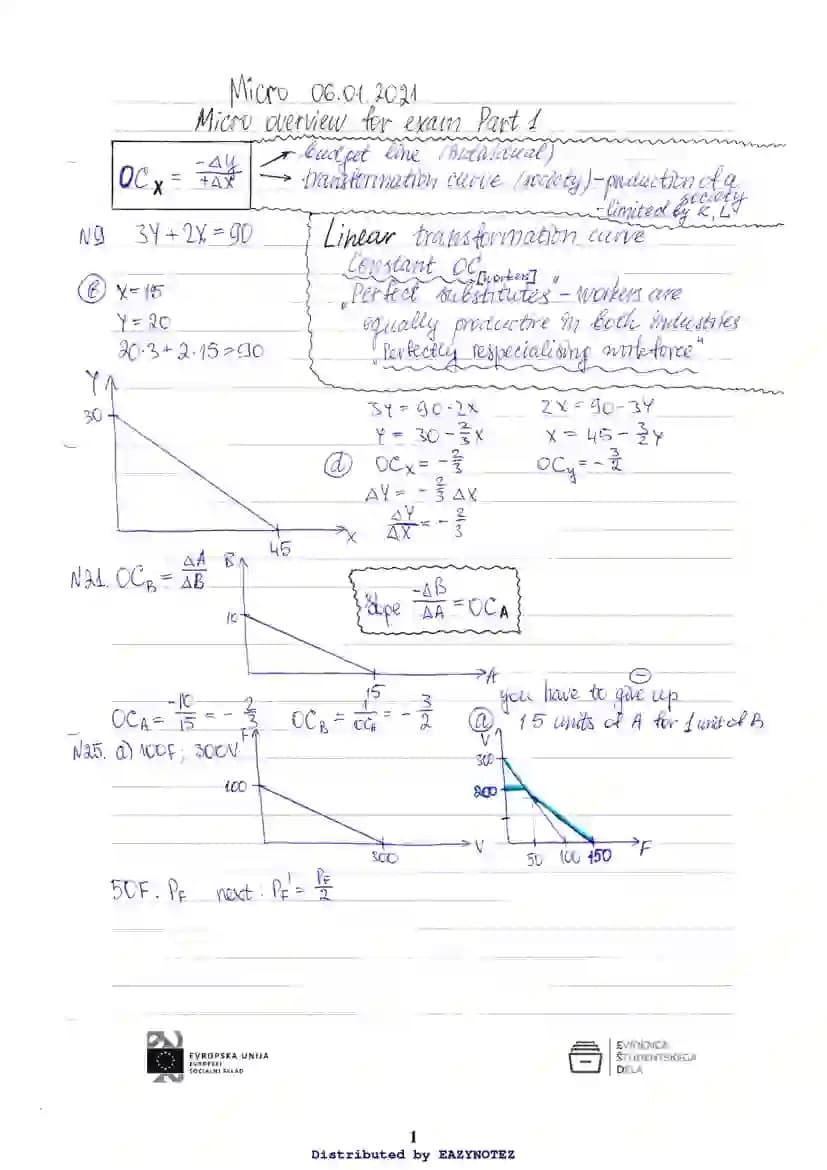 Micro 06.01.2021
Micro overview for exam Part 1
OCx = -ΔY/+ΔX
budget line (individual)
transformation curve (society) - production of a society
- limited by K, L
N9 3Y + 2X = 90
Linear transformation curve
Constant OC
[workers]
"Perfect substitutes" - workers are
equally productive in both industries
"Perfectly respecialising workforce"
X = 15
Y = 20
20·3 + 2·15 = 90
Y
30
45
X
3Y = 90 - 2X
2X = 90 - 3Y
Y = 30 - 2/3 X
X = 45 - 3/2 Y
d OCx = - 2/3
OCy = - 3/2
ΔY = - 2/3 ΔX
ΔY/ΔX = - 2/3
N21. OCB = ΔA/ΔB
B
10
15
A
Slope -ΔB/ΔA = OCA
OCA = -10/15 = - 2/3
OCB = 1/OCA = - 3/2
you have to give up
1.5 units of A for 1 unit of B
N25. a) 100F; 300V
F
100
300
V
a
V
300
200
50 100 150
F
50F. PF next: PF' = PF/2
EVROPSKA UNIJA
EVROPSKI
SOCIALNI SKLAD
EVIDENCA
ŠTUDENTSKEGA
DELA
1
Distributed by EAZYNOTEZ